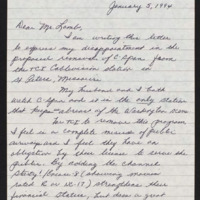 January 5, 1994
Dear Mr. Lamb,
I am writing this letter
to express my disappointment in the
proposed removal of C-Span from
the TCI Cablevision station in
St. Peters, Missouri.
My husband and I both
watch C-Span and it is the only station
that keeps abreast of the Washington scene.
For TCI to remove this program
I feel is a complete misuse of public
airways and I feel they have an
obligation by their license to serve the
public. By adding the channel
(
rated 6 or 12-17) strengthens their
financial status, but does a great